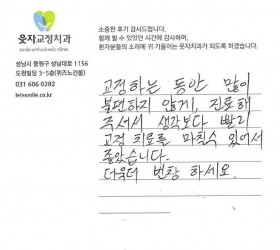 웃자교정치과
smile orthodontic clinic
성남시 중원구 성남대로 1156
도원빌딩 3-5층(퀴즈노건물)
031 606 0282
letssmile.co.kr
소중한 후기 감사드립니다.
함께 할 수 있었던 시간에 감사하며,
환자분들의 소리에 귀 기울이는 웃자치과가 되도록 하겠습니다.
교정하는 동안 많이
불편하지 않게, 진료해
주셔서 생각보다 빨리
교정 치료를 마칠수 있어서
좋았습니다.
더욱더 번창 하세요.